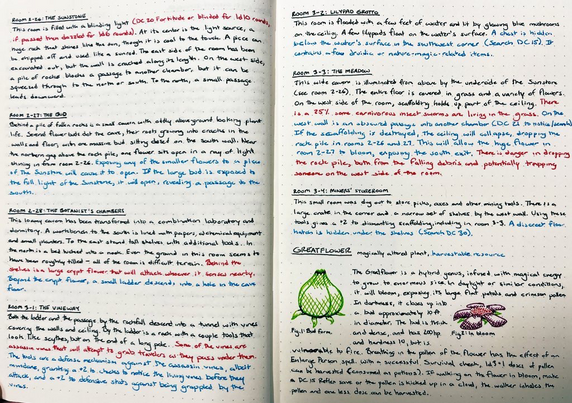 ROOM 2-26: THE SUNSTONE
This room is filled with a blinding light (DC 20 Fortitude or blinded for 1d10 rounds,
if passed then dazzled for 1d6 rounds). At its center is the light source, a
huge rock that shines like the sun, though it is cool to the touch. A piece can
be chipped off and used like a sunrod. The east side of the room has been
excavated out, but the wall is cracked along its length. On the west side,
a pile of rocks blocks a passage to another chamber, but it can be
squeezed through to the north or south. To the north, a small passage
leads downward.
ROOM 2-27: THE BUD
Behind a pile of fallen rocks is a small cavern with oddly above ground looking plant
life. Several flower buds dot the cave, their roots growing into cracks in the
walls and floor, with one massive bud sitting against the south wall. Near
the northern gap above the rocks pile, one flower sits open in a ray of light
shining in from room 2-26. Exposing any of the smaller flowers to a piece
of the Sunstone will cause it to open. If the large bud is exposed to
the full light of the Sunstone, it will open, revealing a passage to the
south.
ROOM 2-28: THE BOTANIST'S CHAMBERS
This loamy cavern has been transformed into a combination laboratory and
dormitory. A workbench to the south is lined with papers, alchemical equipment
and small powders. To the east stand tall shelves, with additional tools. In
the north is a bed tucked into a nook. Even the ground in this room seems to
have been roughly tilled - all of the room is difficult terrain. Behind the
shelves is a large crypt flower that will attack whoever it senses nearby.
Beyond the crypt flower, a small ladder descends into a hole in the cave
floor.
ROOM 3-1: THE VINEWAY
Both the ladder and the passage by the rockfall descend into a tunnel with vines
covering the walls and ceiling. By the ladder is a rack with a couple tools that
look like scythes, but on the end of a long pole. Some of the vines are
assassin vines that will attempt to grab travelers as they pass under them.
The tools are a defensive mechanism against the assassin vines, albeit
mundane, granting a +2 to checks to notice the living vines before they
attack, and a +2 to defensive stats against being grappled by the
vines.
ROOM 3-2: LILYPAD GROTTO
This room is flooded with a few feet of water and lit by glowing blue mushrooms
on the ceiling. A few lilypads float on the water's surface. A chest is hidden
below the water's surface in the southwest corner (Search DC 15). It
contains a few druidic or nature-magic-related items.
ROOM 3-3: THE MEADOW
This wide cavern is illuminated from above by the underside of the Sunstone
(see room 2-26). The entire floor is covered in grass and a variety of flowers.
On the west side of the room, scaffolding holds up part of the ceiling. There
is a 75% some carnivorous insect swarms are living in the grass. On the
west wall is an obscured passage into another chamber (DC 25 to notice/search)
If the scaffolding is destroyed, the ceiling will collapse, dropping the
rock pile in rooms 2-26 and 2-27. This will allow the huge flower in
room 2-27 to bloom, exposing the south exit. There is danger in dropping
the rock pile, both from the falling debris and potentially trapping
someone on the west side of the room.
ROOM 3-4: MINERS' STOREROOM
This small room was dug out to store picks, axes and other mining tools. There is a
large crate in the corner and a narrow set of shelves by the west wall. Using these
tools gives a +2 to dismantling scaffolding including in room 3-3. A discreet floor
hatch is hidden under the shelves (Search DC 30).
GREATFLOWER magically altered plant, harvestable resource
The Greatflower is a hybrid genus, infused with magical energy
to grow to enormous size. In daylight or similar conditions,
it will bloom, exposing its large flat petals and crimson pollen
In darkness, it closes up into
a bud approximately 10 ft
in diameter. The bud is thick
and dense, and has 200hp
and hardness 10, but is
Fig.1: Bud form
Fig.2: In bloom
vulnerable to fire. Breathing in the pollen of the flower has the effect of an
Enlarge Person spell. With a successful Survival check, 1d3+1 doses of pollen
can be harvested (consumed as potions). If walking on the flower in bloom, make
a DC 15 Reflex save or the pollen is kicked up in a cloud, the walker inhales the
pollen and one less dose can be harvested.